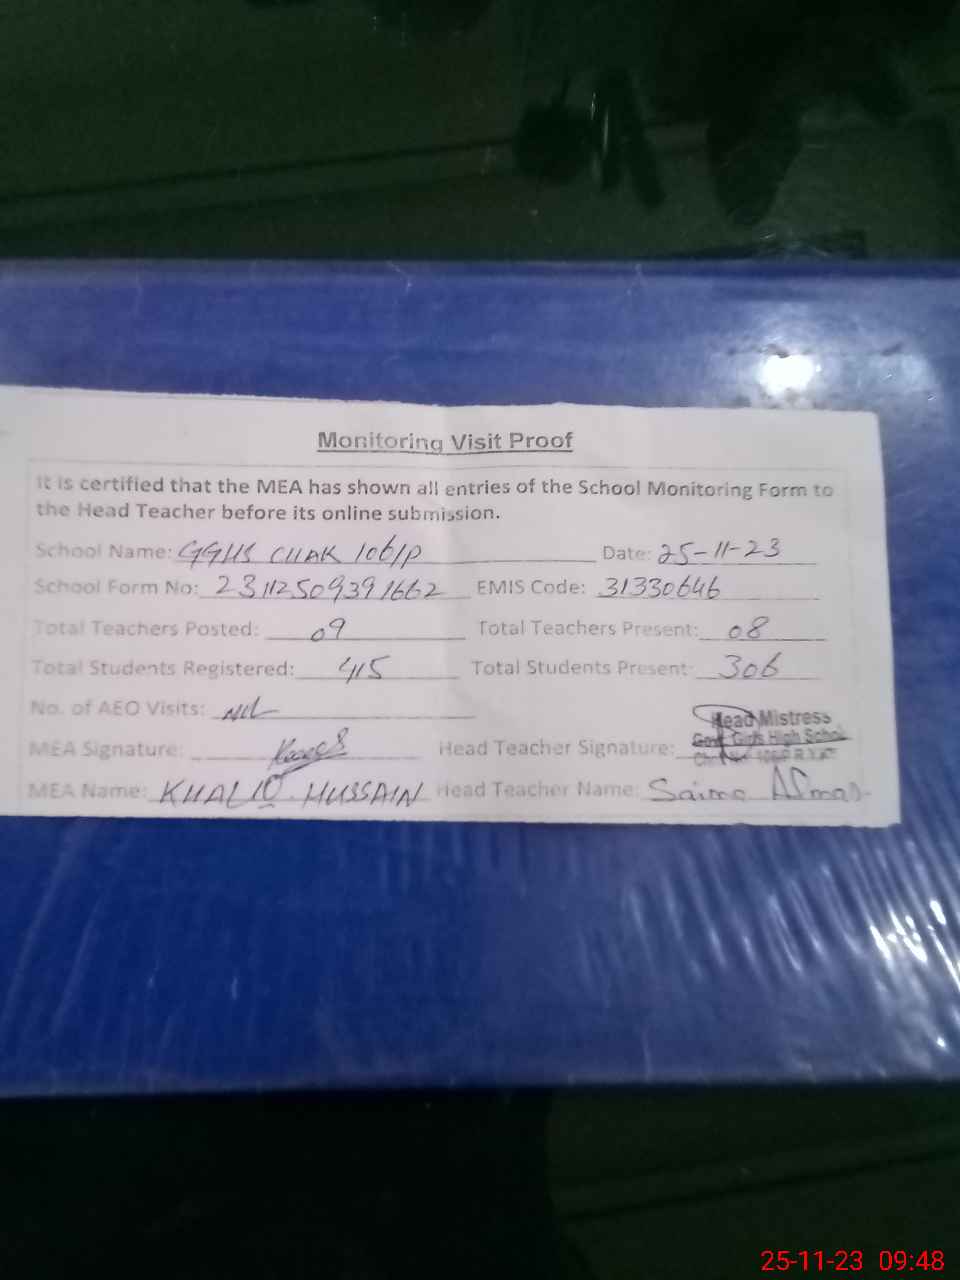 Monitoring Visit Proof
It is certified that the MEA has shown all entries of the School Monitoring Form to
the Head Teacher before its online submission.
School Name: GGHS CHAK 106/P Date: 25-11-23
School Form No: 23112509391662 EMIS Code: 31330646
Total Teachers Posted: 09 Total Teachers Present: 08
Total Students Registered: 415 Total Students Present: 306
No. of AEO Visits: NIL
Head Mistress
Govt. Girls High School
MEA Signature: Head Teacher Signature:
MEA Name: KHALIQ HUSSAIN Head Teacher Name: Saima
25-11-23 09:48